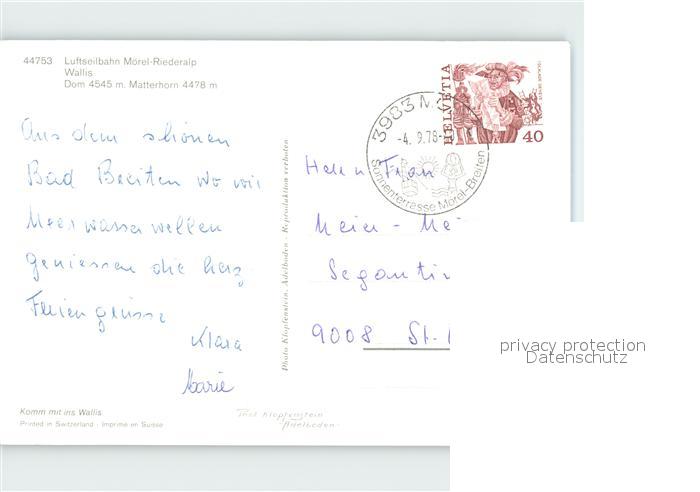 44753 Luftseilbahn Mörel-Riederalp
Wallis
Dom 4545 m. Matterhorn 4478 m
Aus dem schönen
Bad Breiten wo wir
Meerwasserwellen
geniessen die herz.
Feriengrüsse
Klara
Marie
Komm mit ins Wallis
Printed in Switzerland - Imprimé en Suisse
Photo Klopfenstein, Adelboden - Reproduktion verboten
Photo Klopfenstein
Adelboden
3983 M
-4. 9.78-
Sonnenterrasse Mörel-Breiten
HELVETIA
40
Herrn Frau
Meier - Me
Segantin
9008 St.
privacy protection
Datenschutz